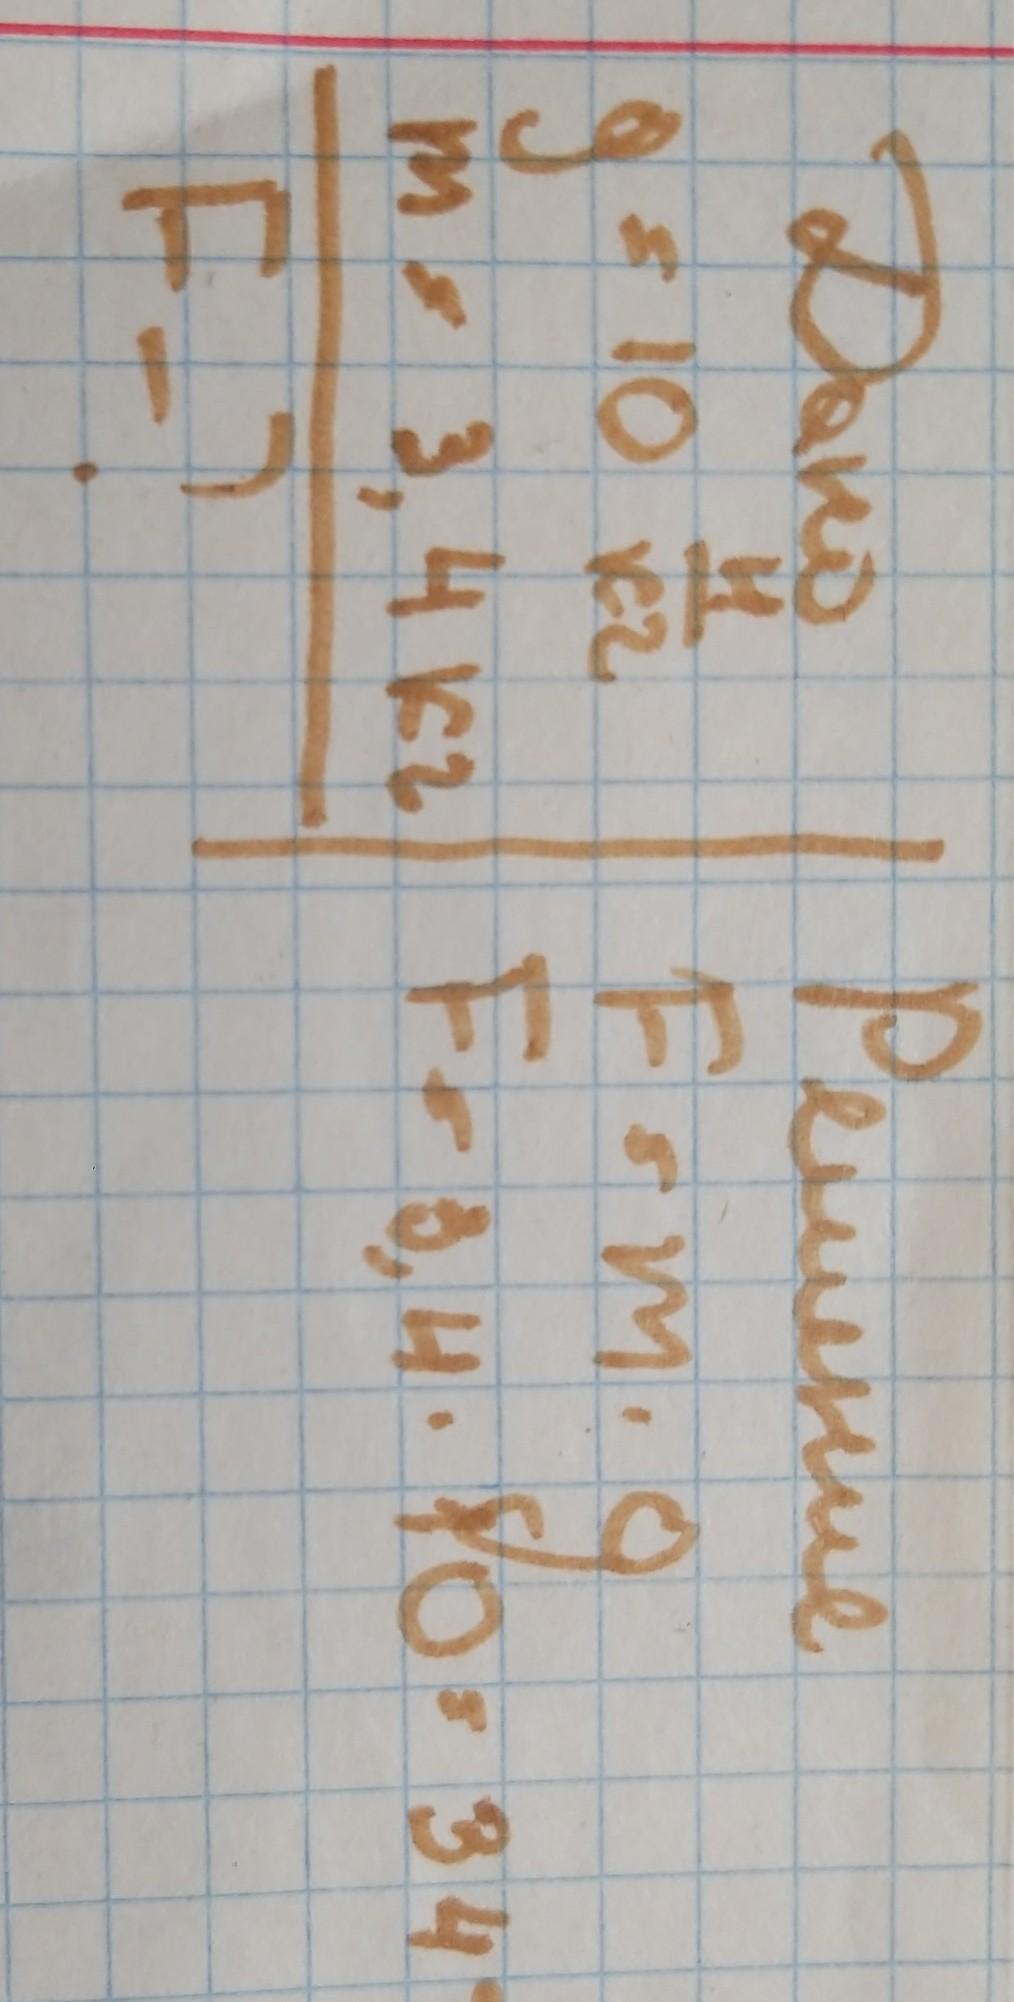 Дано
g = 10 Н/кг
m = 3,4 кг
F - ?
Решение
F = m · g
F = 3,4 · 10 = 34